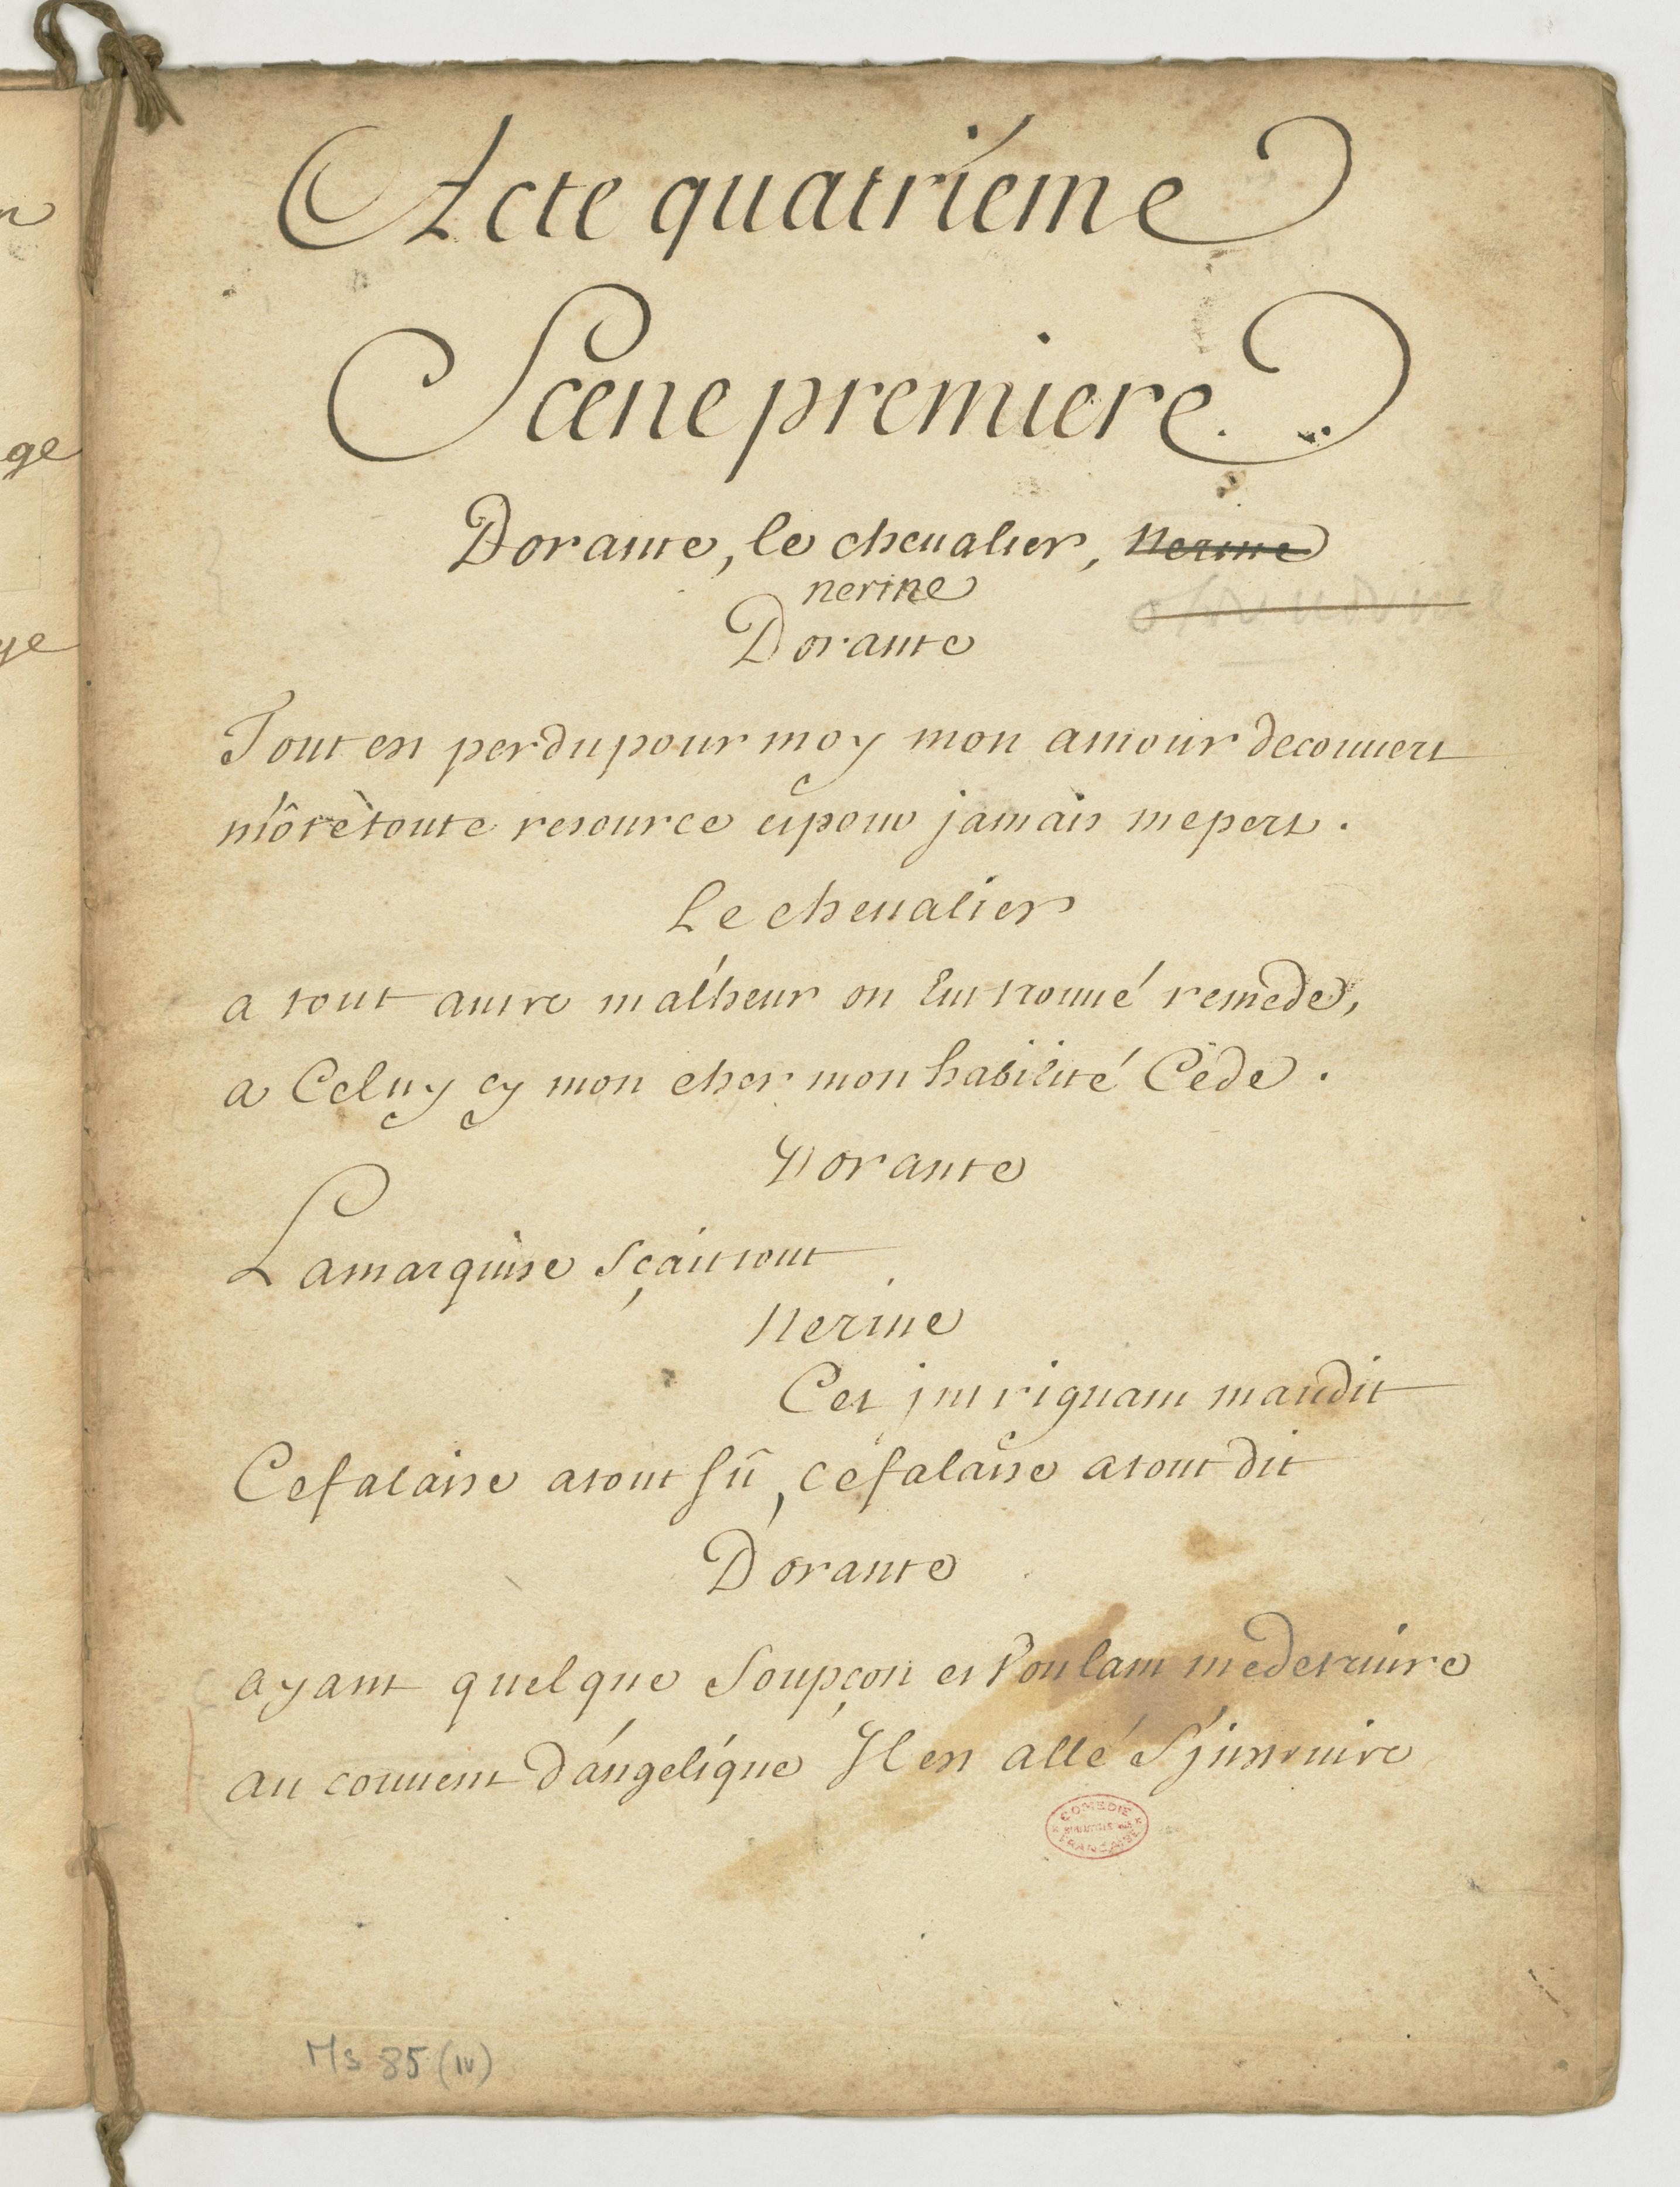 n
ge
ye
Acte quatriéme
Scene premiere.
Dorante, le cheualier, nerine
nerine
Dorante
Tout est perdu pour moy mon amour decouuert
m'ôte toute resource et pour jamais me pert.
Le cheualier
a tout autre malheur on eut trouué remede,
a Celuy cy mon cher mon habileté Cede.
Dorante
La marquise sçait tout
Nerine
Cet jntriguant maudit
Ce falaise a tout sû, ce falaise a tout dit
Dorante
ayant quelque soupçon et voulant me detruire
au couuent d'angelique Il est allé s'jnstruire
COMEDIE
FRANÇAISE
Ms 85 (IV)